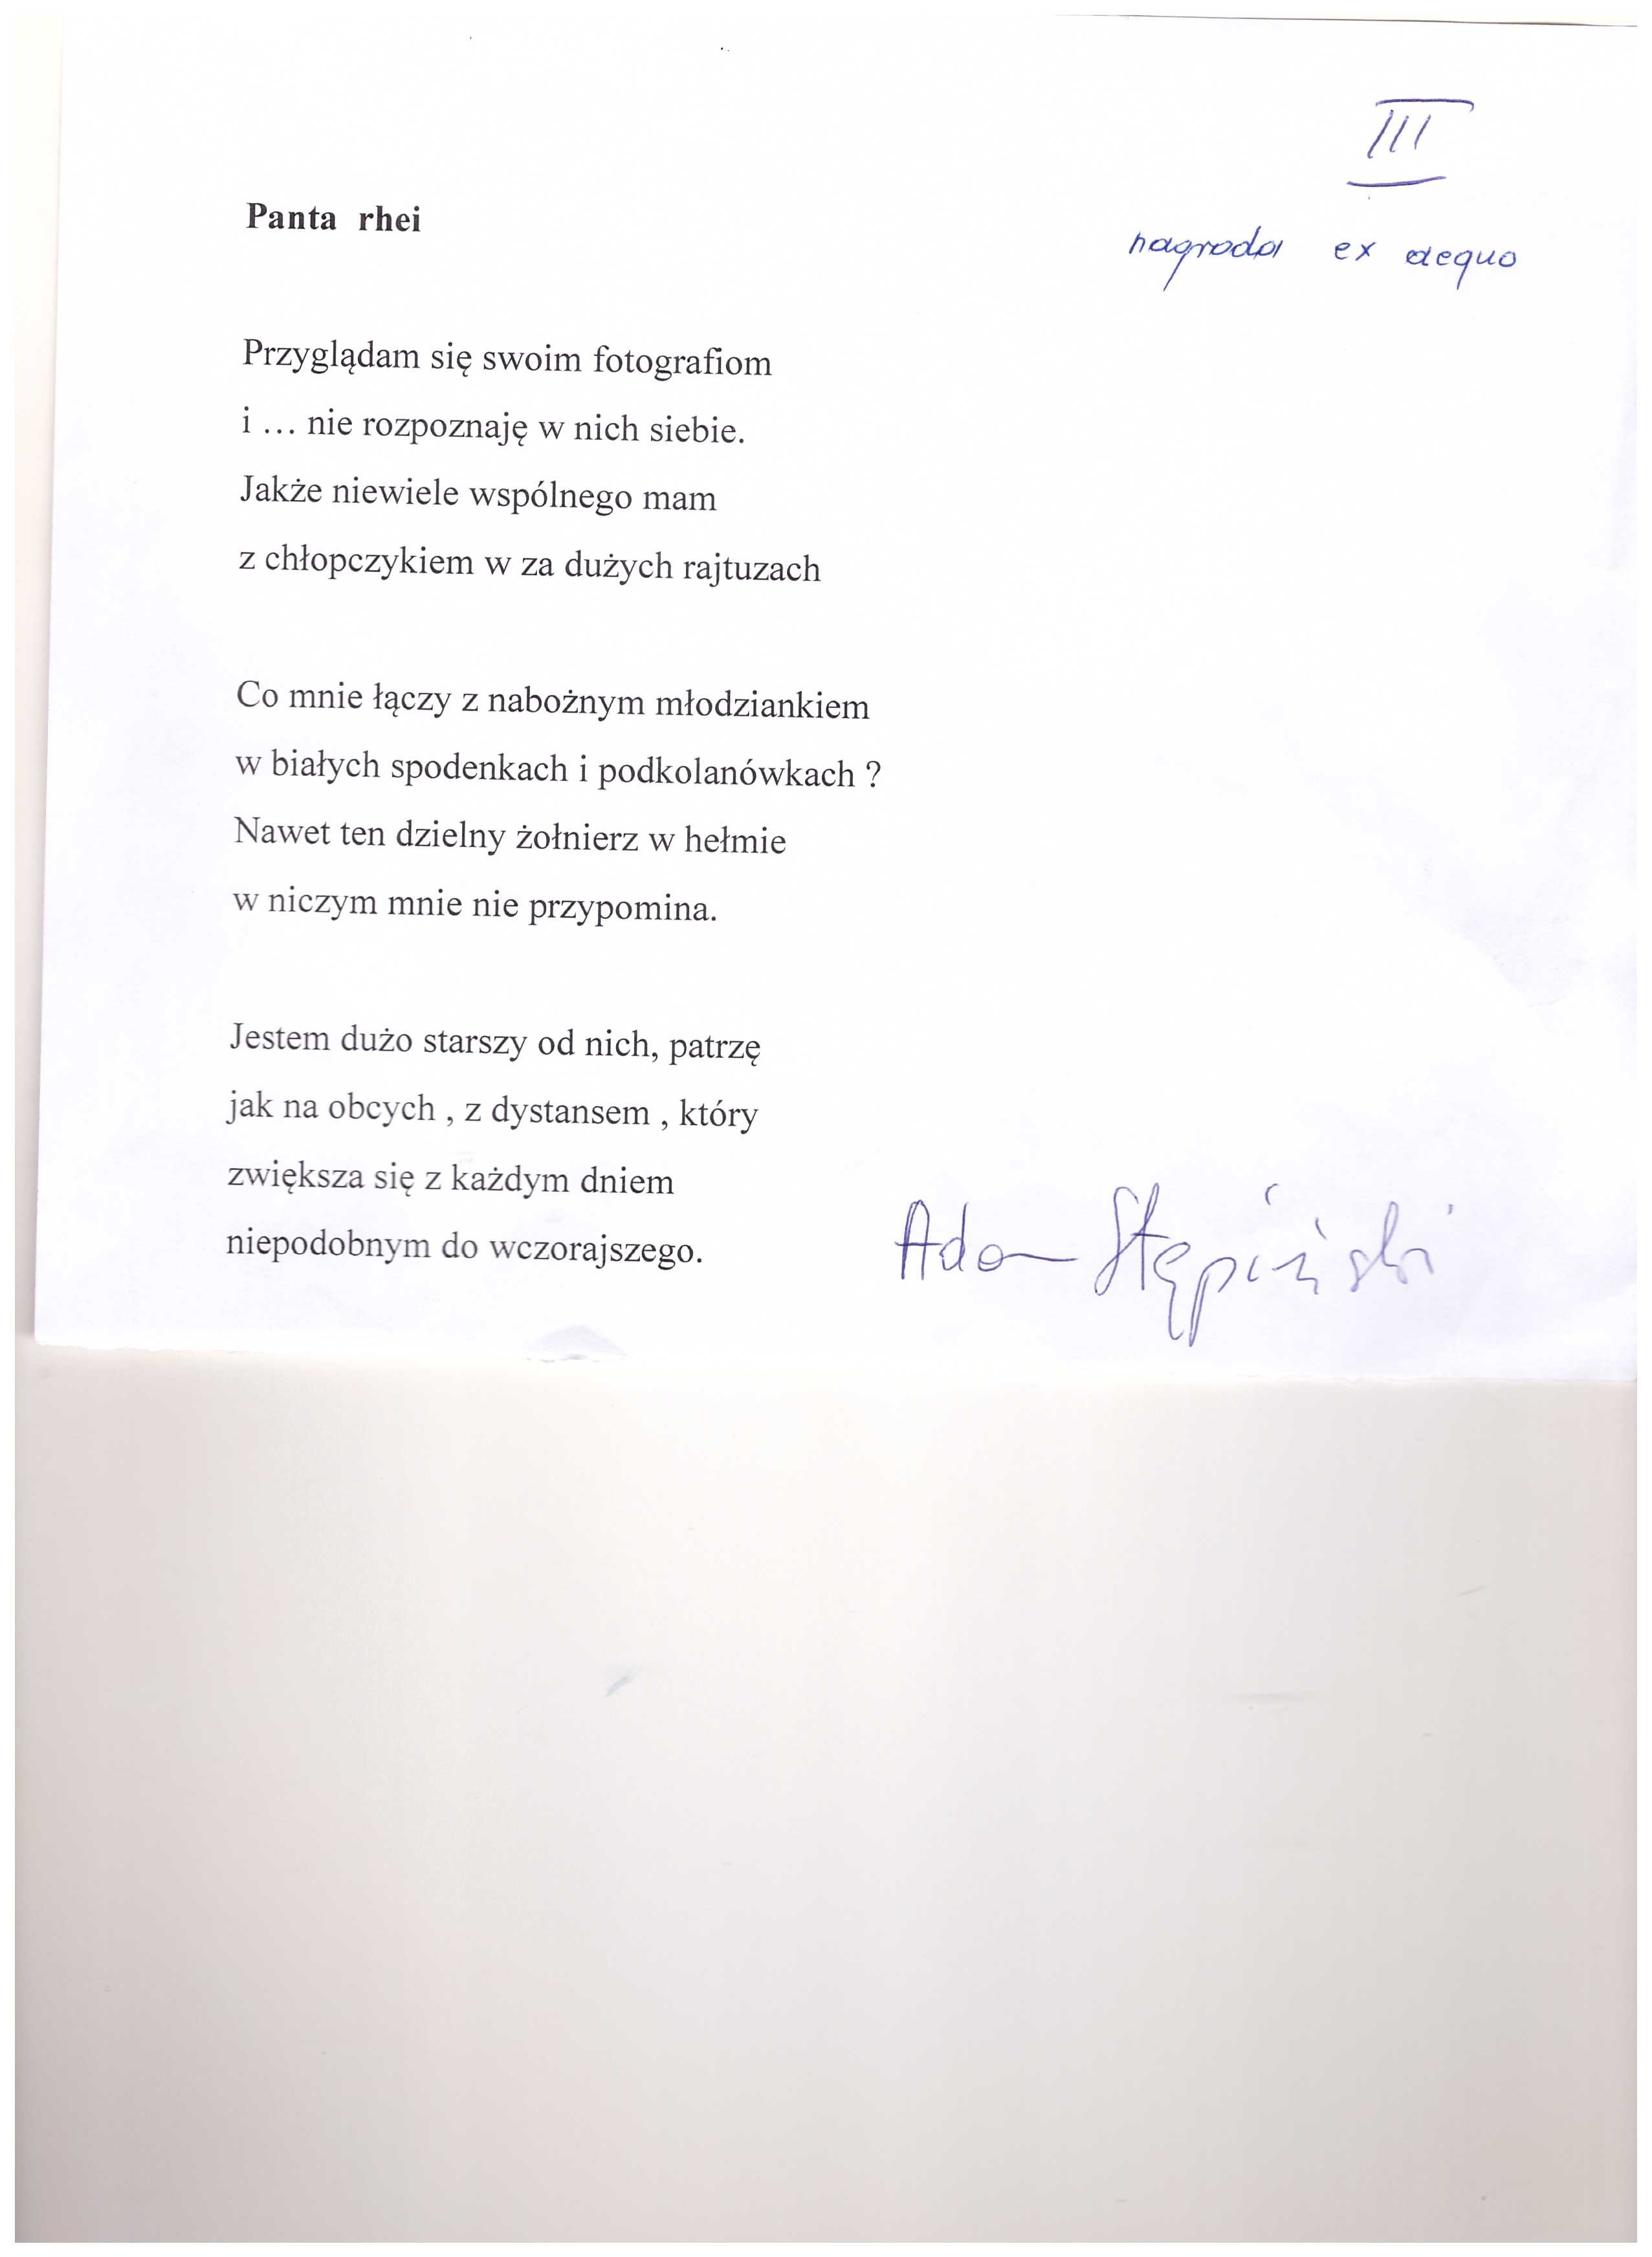 III
nagroda ex aequo
Panta rhei
Przyglądam się swoim fotografiom
i ... nie rozpoznaję w nich siebie.
Jakże niewiele wspólnego mam
z chłopczykiem w za dużych rajtuzach
Co mnie łączy z nabożnym młodziankiem
w białych spodenkach i podkolanówkach ?
Nawet ten dzielny żołnierz w hełmie
w niczym mnie nie przypomina.
Jestem dużo starszy od nich, patrzę
jak na obcych , z dystansem , który
zwiększa się z każdym dniem
niepodobnym do wczorajszego.
Adam Stępiński